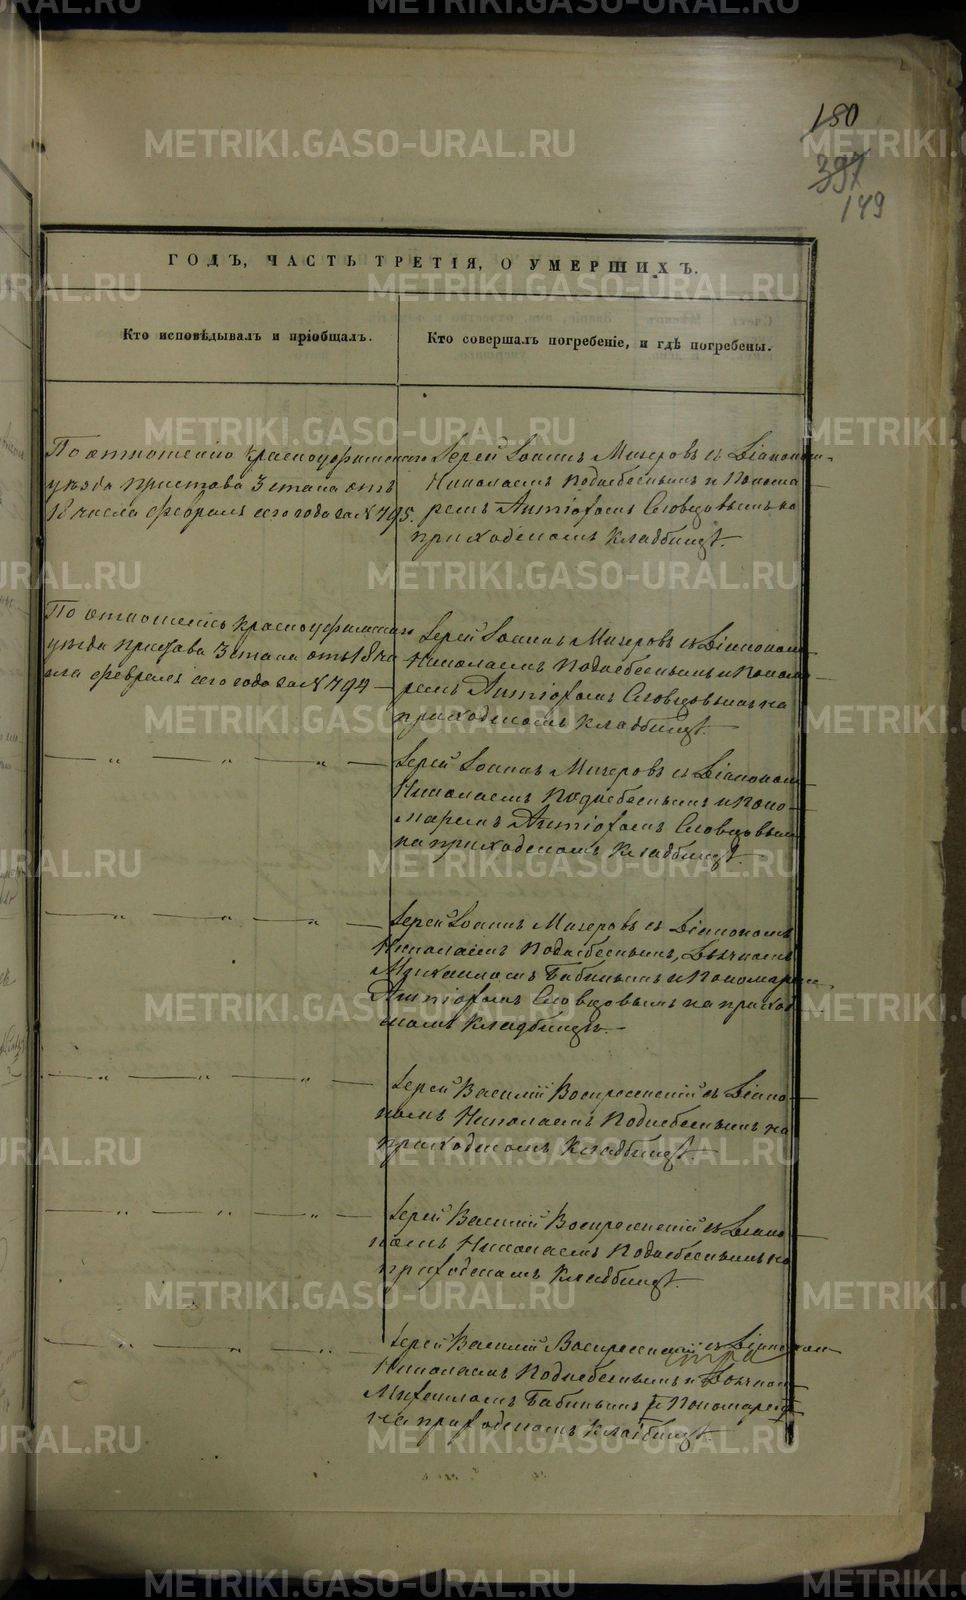 180
397
149
ГОДЪ, ЧАСТЬ ТРЕТІЯ, О УМЕРШИХЪ.
Кто исповѣдывалъ и пріобщалъ.
Кто совершалъ погребеніе, и гдѣ погребены.
По отношенію Красноуфимскаго
уѣзда пристава 3 стана отъ
18 числа февраля сего года за № 795.
Іерей Іоаннъ Мизеровъ съ Діакономъ
Николаемъ Поднебеснымъ и Понома
ремъ Словцовымъ на
приходскомъ кладбищѣ.
По отношенію Красноуфимскаго
уѣзда пристава 3 стана отъ 18 чи
сла февраля сего года за № 794
Іерей Іоаннъ Мизеровъ съ Діакономъ
Николаемъ Поднебеснымъ и Понома
ремъ Словцовымъ на
приходскомъ кладбищѣ.
— „ — „ — „ —
Іерей Іоаннъ Мизеровъ съ Діакономъ
Николаемъ Поднебеснымъ и Поно
маремъ Словцовымъ
на приходскомъ кладбищѣ.
— „ — „ — „ —
Іерей Іоаннъ Мизеровъ съ Діакономъ
Николаемъ Поднебеснымъ, Дьячкомъ
Михаиломъ Бабинымъ и Пономаремъ
Словцовымъ на приход
скомъ кладбищѣ.
— „ — „ — „ —
Іерей Василій Воскресенскій съ Діако
номъ Николаемъ Поднебеснымъ на
приходскомъ кладбищѣ.
— „ — „ — „ —
Іерей Василій Воскресенскій съ Діако
номъ Николаемъ Поднебеснымъ на
приходскомъ кладбищѣ.
— „ — „ — „ —
Іерей Василій Воскресенскій съ Діакономъ
Николаемъ Поднебеснымъ и Дьячком
Михаиломъ Бабинымъ и Пономарем
на приходскомъ кладбищѣ.
METRIKI.GASO-URAL.RU